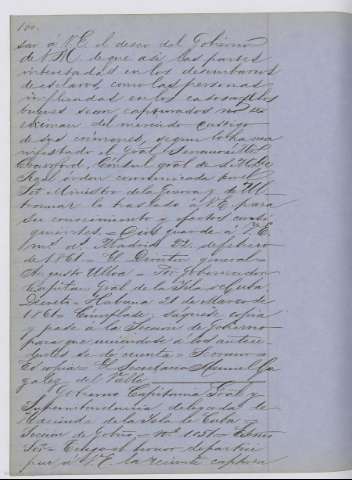 100.
sar á V.E. el deseo del Gobierno
de S.M. de que asi las partes
interesadas en los desembarcos
de esclavos, como las personas
implicadas en los casos de los
buques sean capturados no se
eximan del merecido castigo
de sus crimenes, segun lo ha ma
nifestado el Gral. Senamarite
Crawford, Consul gral de S.M.B.
Real órden comunicada por el
Sor. Ministro de la Guerra y de Ul
tramar la traslado á V.E. para
su conocimiento y efectos consi
guientes. = Dios guarde á V.E.
ms. as. Madrid 22 de febrero
de 1861 = El Director general =
Augusto Ulloa = Sor Gobernador
Capitan Gral de la Isla de Cuba.
Decreto = Habana 21 de Marzo de
1861 = Cúmplase, saquese copia
y pase á la Seccion de Gobierno
para que uniendose á los antece
dentes se dé cuenta = Serrano =
Es copia = El Secretario Manuel Gon
zalez del Valle
Gobierno Capitania Gral y
Superintendencia delegada de
Hacienda de la Isla de Cuba =
Seccion de Gobno = Nº 1031 = Excmo
Sor = Tengo el honor de partici
par á V.E. la reciente captura